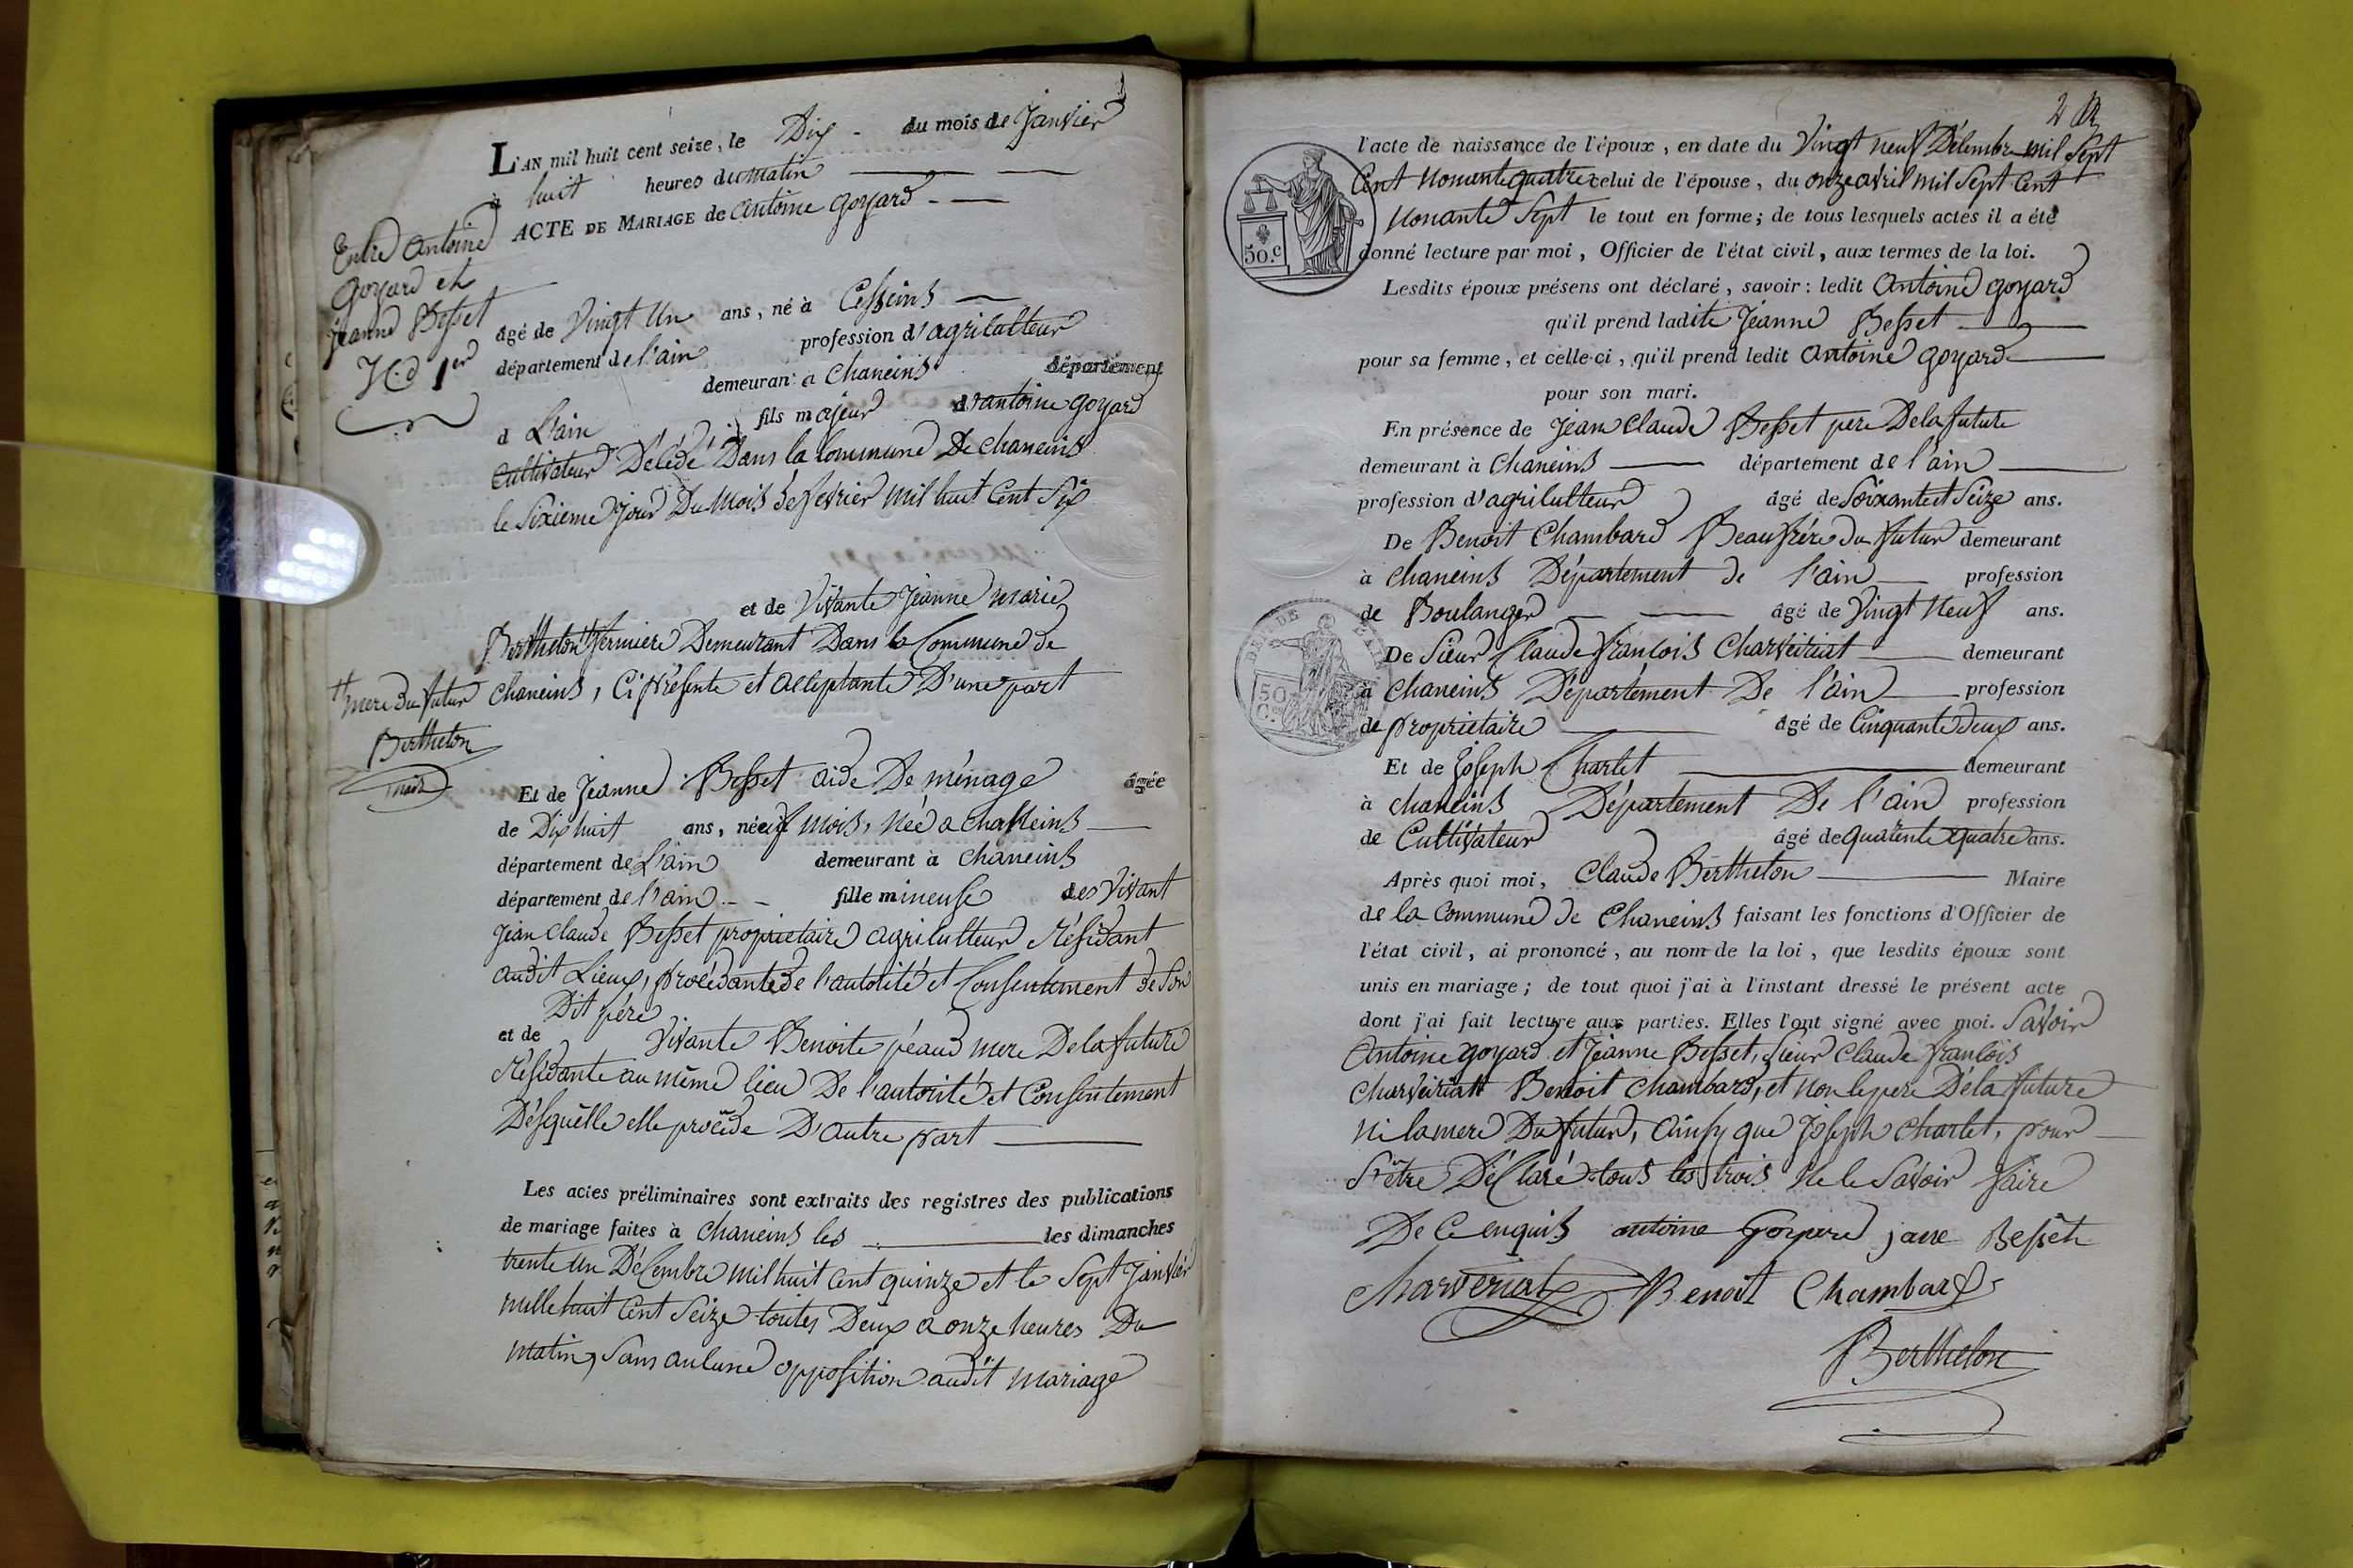 L'AN mil huit cent seize, le Dix du mois de Janvier
à huit heures du matin
ACTE DE MARIAGE de antoine goyard
Entre Antoine
goyard et
jeanne Besset
N.o 1er
âgé de Vingt Un ans, né à Cesseins
département de l'ain profession d'agriculteur
demeurant à Chaneins département
d L'ain fils majeur d'antoine goyard
Cultivateur Décédé Dans la Commune De chaneins
le Sixieme jour Du Mois de fevrier mil huit Cent Six
et de Vivante Jeanne marie
Berthelon # fermiere Demeurant Dans la Commune de
# mere du futur
chaneins, Ci présente et acceptante D'une part
Berthelon
maire
Et de Jeanne Besset aide De ménage âgée
de Dix huit ans, neuf mois, née a chaleins
département de L'ain demeurant à chaneins
département de l'ain fille mineuse des Vivant
jean claude Besset proprietaire agriculteur résidant
audit Lieux, procédante de l'autorité et Consentement de Son
Dit père
et de Vivante Benoite péaud mere De la future
résidante au même lieu De l'autorité et Consentement
Desquelle elle procède D'autre part
Les actes préliminaires sont extraits des registres des publications
de mariage faites à Chaneins les les dimanches
trente un Décembre mil huit Cent quinze et le Sept Janvier
mille huit Cent Seize toutes Deux a onze heures Du
matin, Sans aucune opposition audit mariage
2
l'acte de naissance de l'époux, en date du Vingt neuf Décembre mil Sept
Cent Nonante quatre celui de l'épouse, du onze avril mil Sept Cent
Nonante Sept le tout en forme; de tous lesquels actes il a été
donné lecture par moi, Officier de l'état civil, aux termes de la loi.
50.c
Lesdits époux présens ont déclaré, savoir: ledit Antoine goyard
qu'il prend ladite Jeanne Besset
pour sa femme, et celle-ci, qu'il prend ledit Antoine goyard
pour son mari.
En présence de Jean Claude Besset pere De la future
demeurant à Chaneins département de l'ain
profession d'agriculteur âgé de Soixante et Seize ans.
De Benoit Chambard Beaufrère du futur demeurant
à chaneins Département de l'ain profession
de Boulanger âgé de Vingt Neuf ans.
De Sieur Claude françois Charveiriat demeurant
à Chaneins Département De l'ain profession
de proprietaire âgé de Cinquante Deux ans.
50
Et de Joseph Charlet demeurant
à chaneins Département De l'ain profession
de Cultivateur âgé de quarente quatre ans.
Après quoi moi, Claude Berthelon Maire
de la Commune de Chaneins faisant les fonctions d'Officier de
l'état civil, ai prononcé, au nom de la loi, que lesdits époux sont
unis en mariage; de tout quoi j'ai à l'instant dressé le présent acte
dont j'ai fait lecture aux parties. Elles l'ont signé avec moi. Savoir
Antoine goyard et Jeanne Besset, Sieur Claude françois
Charveiriatt Benoit Chambard, et non le pere De la future
ni la mere Du futur, ainsy que Joseph Charlet, pour
S'être Déclaré tous les trois Ne le Savoir faire
De Ce enquis antoine Goyard jane Besset
Charveriat Benoit Chambard
Berthelon